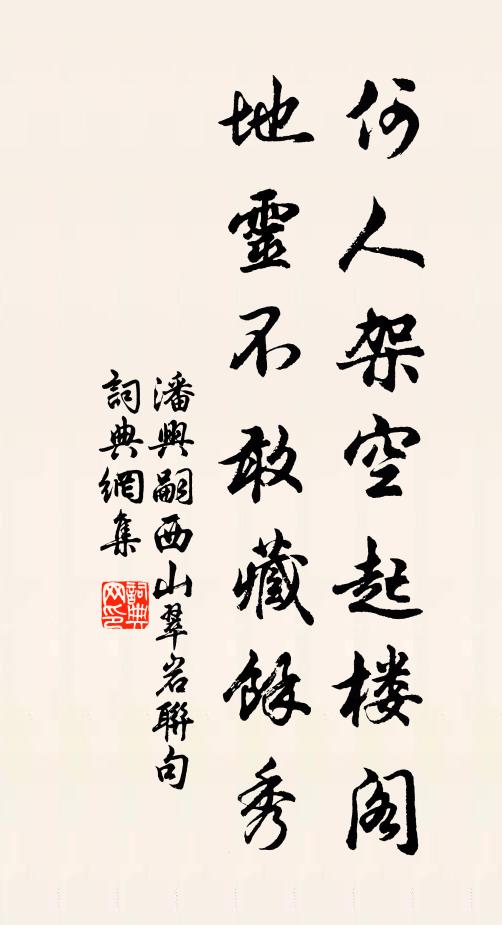 何人架空起楼阁
地靈不敢藏餘秀
潘興嗣西山翠岩聯句
詞典網集
詞典网印